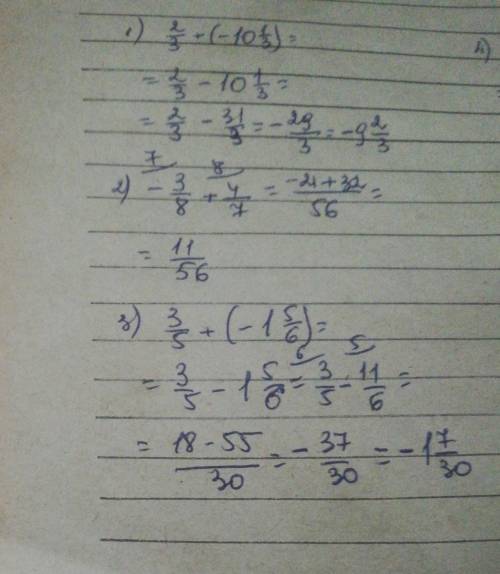 1) 2/3 + (-10 1/3) =
= 2/3 - 10 1/3 =
= 2/3 - 31/3 = - 29/3 = -9 2/3
7 8
2) - 3/8 + 4/7 = -21+32/56 =
= 11/56
3) 3/5 + (-1 5/6) =
6 5
= 3/5 - 1 5/6 = 3/5 - 11/6 =
= 18-55/30 = - 37/30 = -1 7/30
4)